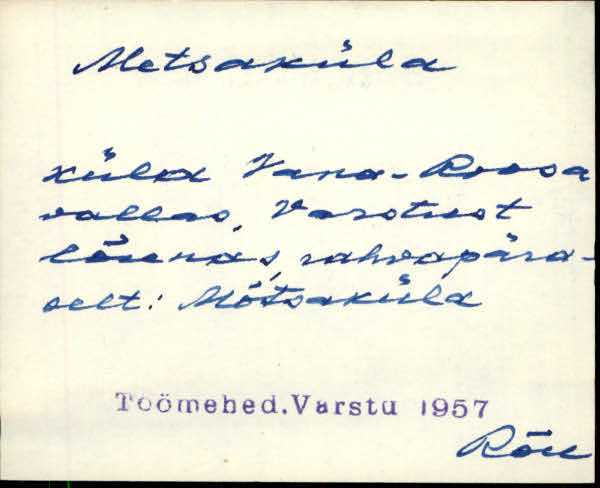 Metsaküla
küla Vana-Roosa
vallas, Varstust
lõunas, rahvapära-
selt: Mõtsaküla
Töömehed.Varstu 1957
Rõu